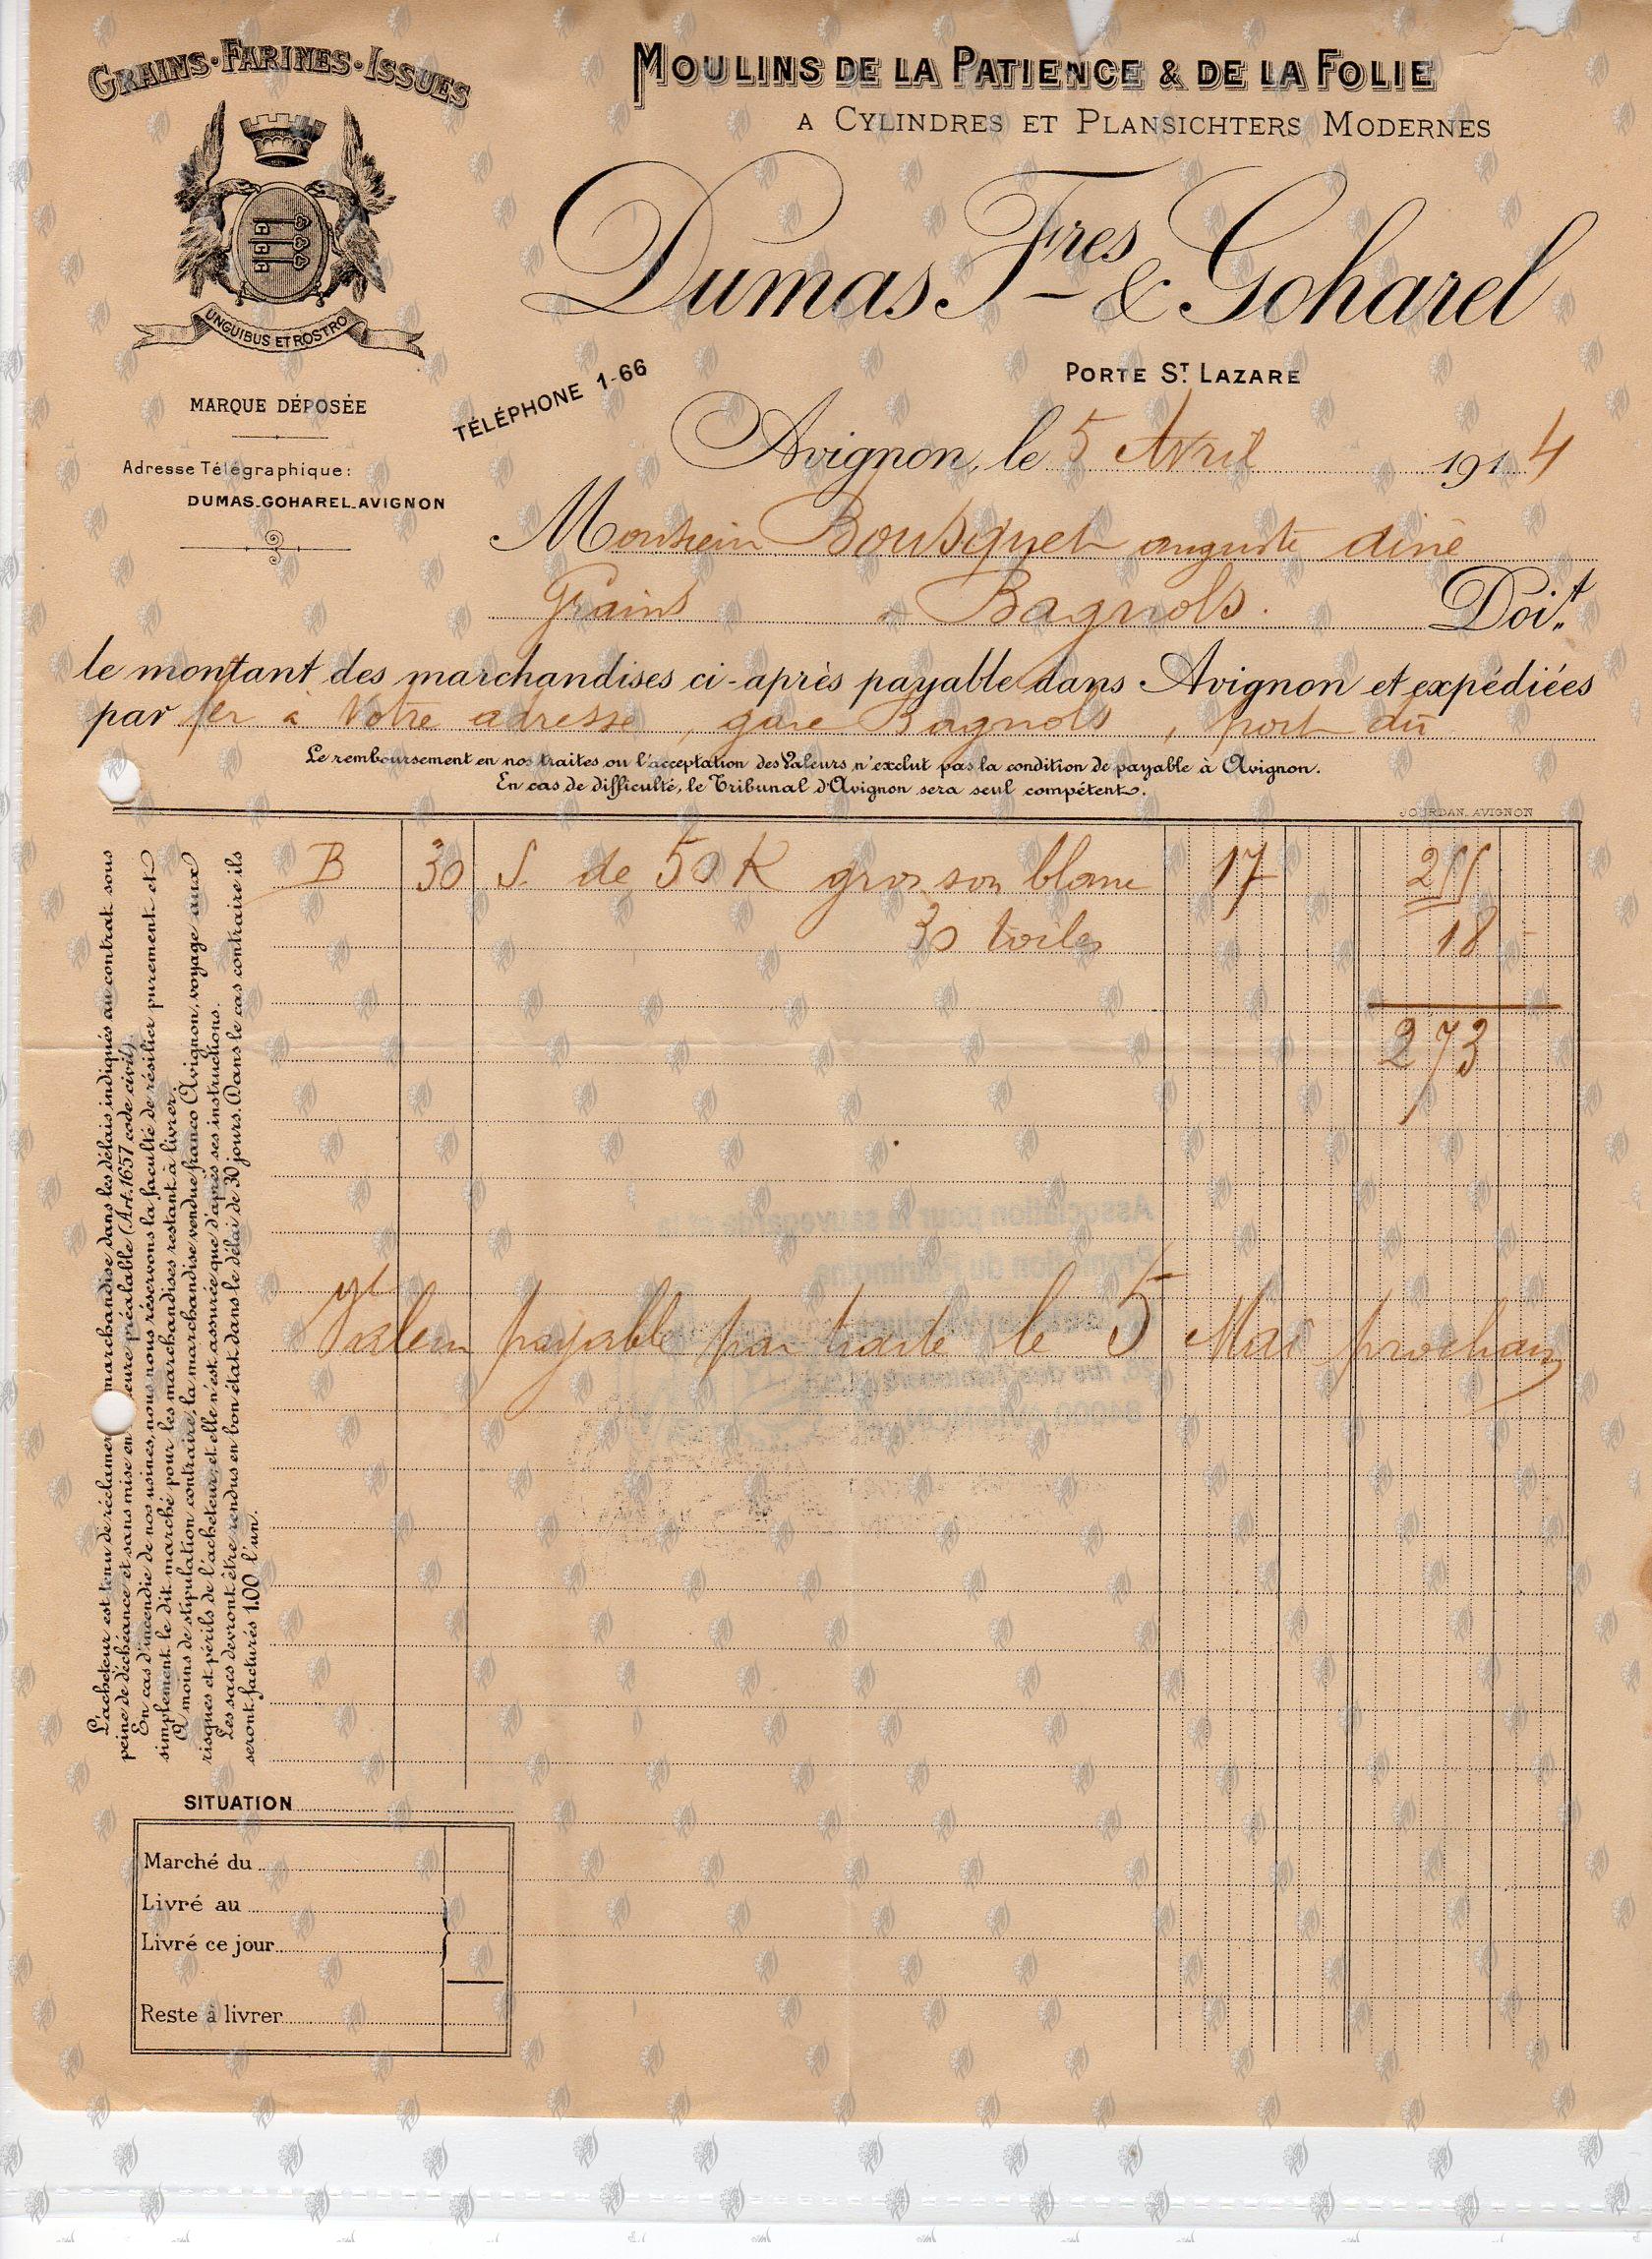 GRAINS·FARINES·ISSUES
UNGUIBUS ET ROSTRO
MARQUE DÉPOSÉE
Adresse Télégraphique:
DUMAS_GOHAREL_AVIGNON
MOULINS DE LA PATIENCE & DE LA FOLIE
A CYLINDRES ET PLANSICHTERS MODERNES
Dumas Fres & Goharel
PORTE ST LAZARE
TÉLÉPHONE 1-66
Avignon, le 5 Avril 1914
Monsieur Bousquet auguste ainé
Grains à Bagnols. Doit
le montant des marchandises ci-après payable dans Avignon et expédiées
par fer à Votre adresse, gare Bagnols, port dû
Le remboursement en nos traites ou l'acceptation des Valeurs n'exclut pas la condition de payable à Avignon.
En cas de difficulté, le Tribunal d'Avignon sera seul compétent.
JOURDAN. AVIGNON
B 30 S. de 50 K gros son blanc 17 255
30 toiles 18 -
273
Valeur payable par traite le 5 Mai prochain
L'acheteur est tenu de réclamer marchandise dans les délais indiqués au contrat sous
peine de déchéance et sans mise en eure préalable (Art. 1657 code civil).
En cas d'incendie de nos usines, nous nous réservons la faculté de résilier purement et
simplement le dit marché pour les marchandises restant à livrer.
A moins de stipulation contraire, la marchandise vendue franco Avignon, voyage aux
risques et périls de l'acheteur, et elle n'est assurée que d'après ses instructions.
Les sacs devront être rendus en bon état dans le délai de 30 jours. Dans le cas contraire ils
seront facturés 1.00 l'un.
SITUATION
Marché du
Livré au
Livré ce jour
Reste à livrer